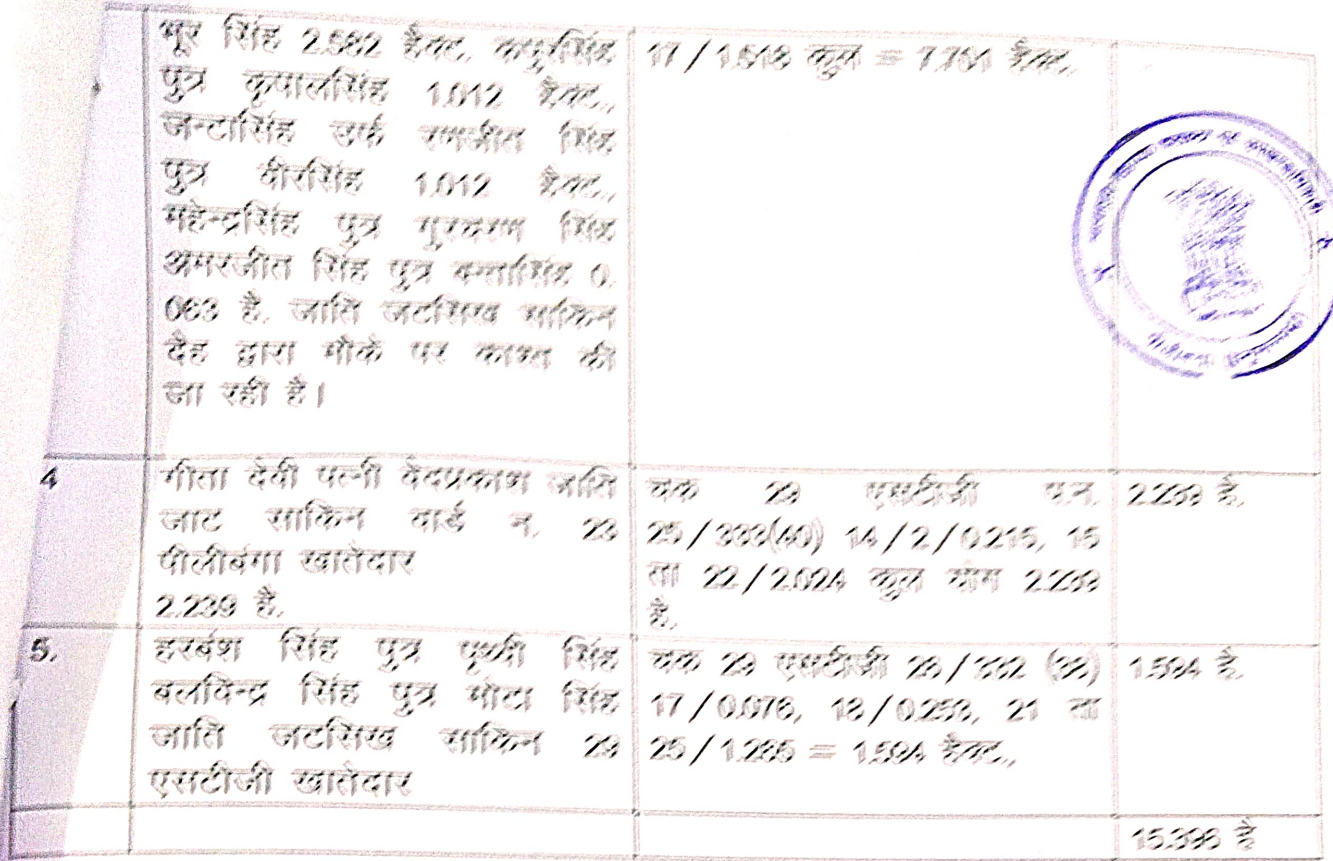 भूर सिंह 2.582 हैक्ट. कपुरसिंह
पुत्र कृपालसिंह 1.012 हैक्ट.,
जन्टासिंह उर्फ रणजीत सिंह
पुत्र वीरसिंह 1.012 हैक्ट.,
महेन्द्रसिंह पुत्र गुरचरण सिंह
अमरजीत सिंह पुत्र बन्तासिंह 0.
063 है. जाति जटसिख साकिन
देह द्वारा मौके पर काश्त की
जा रही है।
17/1.518 कुल = 7.751 हैक्ट.
4
गीता देवी पत्नी वेदप्रकाश जाति
जाट साकिन वार्ड न. 23
पीलीबंगा खातेदार
2.239 है.
चक 29 एसटीजी प.न.
25/333(40) 14/2/0.215, 15
ता 22/2.024 कुल योग 2.239
है.
2.239 है.
5.
हरबंश सिंह पुत्र पृथ्वी सिंह
बलविन्द्र सिंह पुत्र मोटा सिंह
जाति जटसिख साकिन 29
एसटीजी खातेदार
चक 29 एसटीजी 28/332 (38)
17/0.076, 18/0.253, 21 ता
25/1.265 = 1.594 हैक्ट.,
1.594 है.
15.396 है